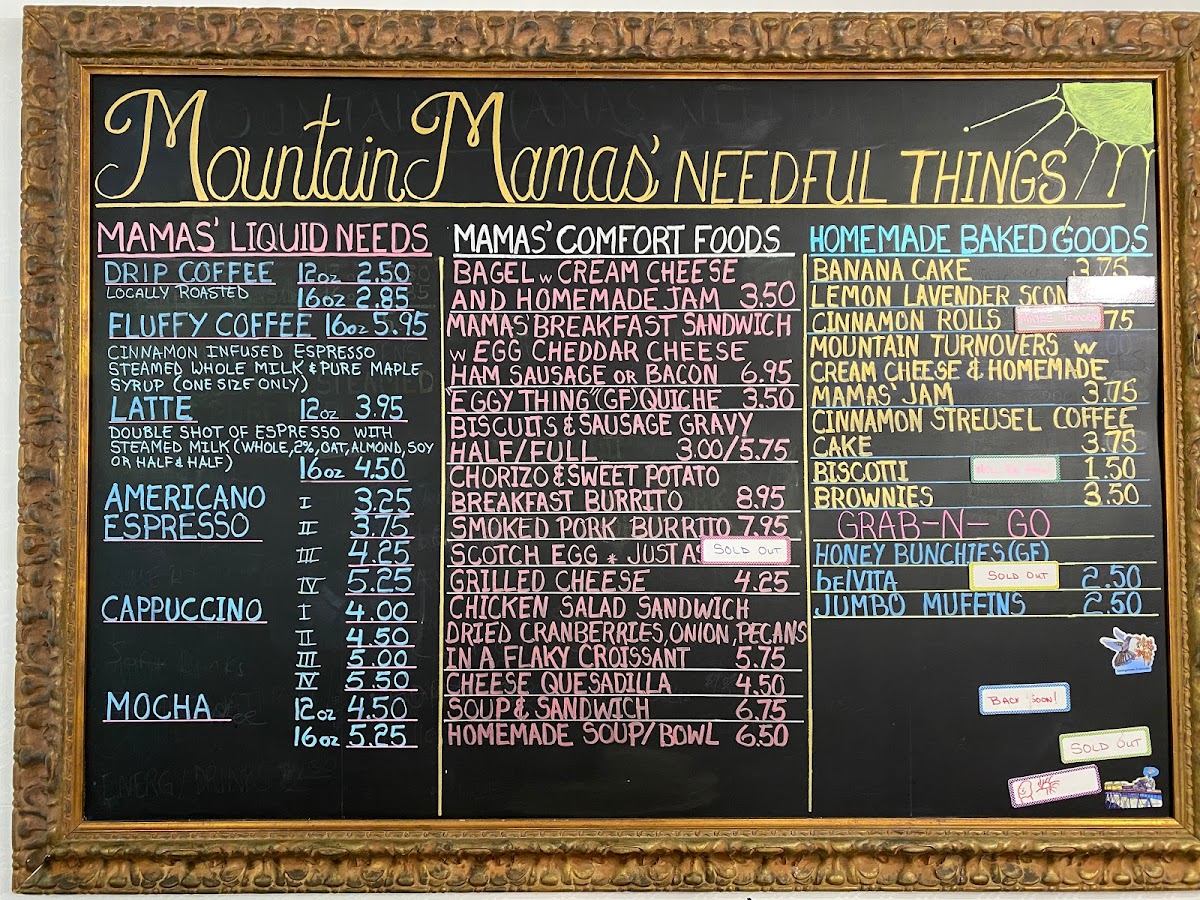 Mountain Mamas' NEEDFUL THINGS
MAMAS' LIQUID NEEDS
DRIP COFFEE 12oz 2.50
LOCALLY ROASTED 16oz 2.85
FLUFFY COFFEE 16oz 5.95
CINNAMON INFUSED ESPRESSO
STEAMED WHOLE MILK & PURE MAPLE
SYRUP (ONE SIZE ONLY)
LATTE 12oz 3.95
DOUBLE SHOT OF ESPRESSO WITH
STEAMED MILK (WHOLE, 2%, OAT, ALMOND, SOY
OR HALF & HALF) 16oz 4.50
AMERICANO I 3.25
ESPRESSO II 3.75
III 4.25
IV 5.25
CAPPUCCINO I 4.00
II 4.50
III 5.00
IV 5.50
MOCHA 12oz 4.50
16oz 5.25
MAMAS' COMFORT FOODS
BAGEL w CREAM CHEESE
AND HOMEMADE JAM 3.50
MAMAS' BREAKFAST SANDWICH
w EGG CHEDDAR CHEESE
HAM SAUSAGE OR BACON 6.95
"EGGY THING" (GF) QUICHE 3.50
BISCUITS & SAUSAGE GRAVY
HALF/FULL 3.00/5.75
CHORIZO & SWEET POTATO
BREAKFAST BURRITO 8.95
SMOKED PORK BURRITO 7.95
SCOTCH EGG * JUST AS SOLD OUT
GRILLED CHEESE 4.25
CHICKEN SALAD SANDWICH
DRIED CRANBERRIES, ONION, PECANS
IN A FLAKY CROISSANT 5.75
CHEESE QUESADILLA 4.50
SOUP & SANDWICH 6.75
HOMEMADE SOUP/BOWL 6.50
HOMEMADE BAKED GOODS
BANANA CAKE 3.75
LEMON LAVENDER SCON
CINNAMON ROLLS 75
MOUNTAIN TURNOVERS w
CREAM CHEESE & HOMEMADE
MAMAS' JAM 3.75
CINNAMON STREUSEL COFFEE
CAKE 3.75
BISCOTTI 1.50
BROWNIES 3.50
GRAB-N-GO
HONEY BUNCHIES (GF)
belVITA SOLD OUT 2.50
JUMBO MUFFINS 2.50
BACK SOON!
SOLD OUT